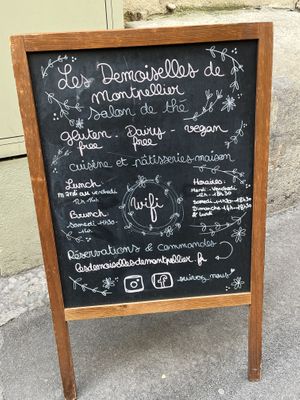 Les Demoiselles de
Montpellier
Salon de thé
gluten - Dairy - vegan
free free
cuisine et pâtisseries maison
Lunch
au vendredi
12h-15h
Brunch
Samedi
wifi
Horaires :
Mardi - Vendredi
Samedi
Dimanche
& Lundi
Réservations & commandes
lesdemoisellesdemontpellier.fr
suivez nous